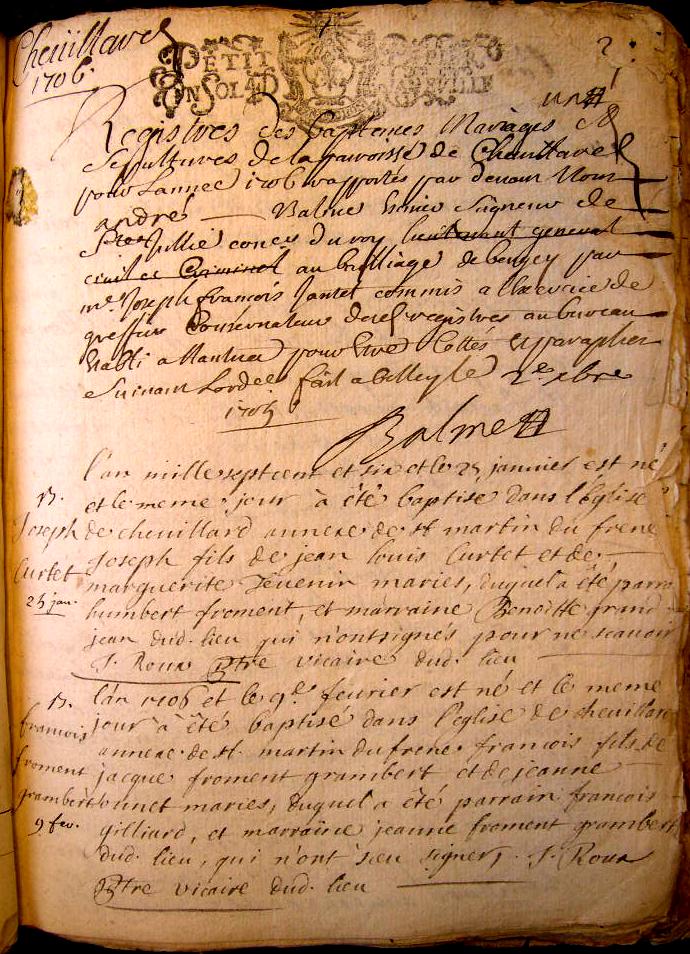 Cheüillard
1706.
PETIT PAPIER
UN SOL LA FEUILLE
un
Registres des baptemes Mariages et
Sepultures de la parroisse de Cheuillard
pour Lannee 1706 rapportés par deuant Nous
andré Balme Seigneur de
conser du roy lieutenant general
ciuil et Criminel au bailliage de bugey par
me. Joseph françois Jantet commis a l'exercice de
greffier Conseruateur desd registres au bureau
etabli a Nantua pour Estre Cottés et parapher
Suiuant Lordce fait a belley le 2e. xbre
1705
Balme
l'an mille sept cent et six et le 25 janvier est né
et le meme jour à été baptisé dans l'Eglise
de cheuillard annexe de st martin du frene
Joseph fils de jean louis Curtet et de
marguerite Tevenin mariés, duquel a été parra
humbert froment, et marraine Benoitte grand
jean dud. lieu qui n'ont signés pour ne scauoir
J. Roux Ptre vicaire dud. lieu
B.
Joseph
Curtet
25 jan.
l'an 1706 et le 9e. feurier est né et le meme
jour à été baptisé dans l'eglise de cheuillard
annexe de st. martin du frene. francois fils de
jacque froment grambert et de jeanne
bonnet mariés, duquel a été parrain francois
gilliard, et marraine jeanne froment grambert
dud. lieu, qui n'ont sceu signer, J. Roux
Ptre vicaire dud. lieu
B.
francois
froment
grambert
9 fev.